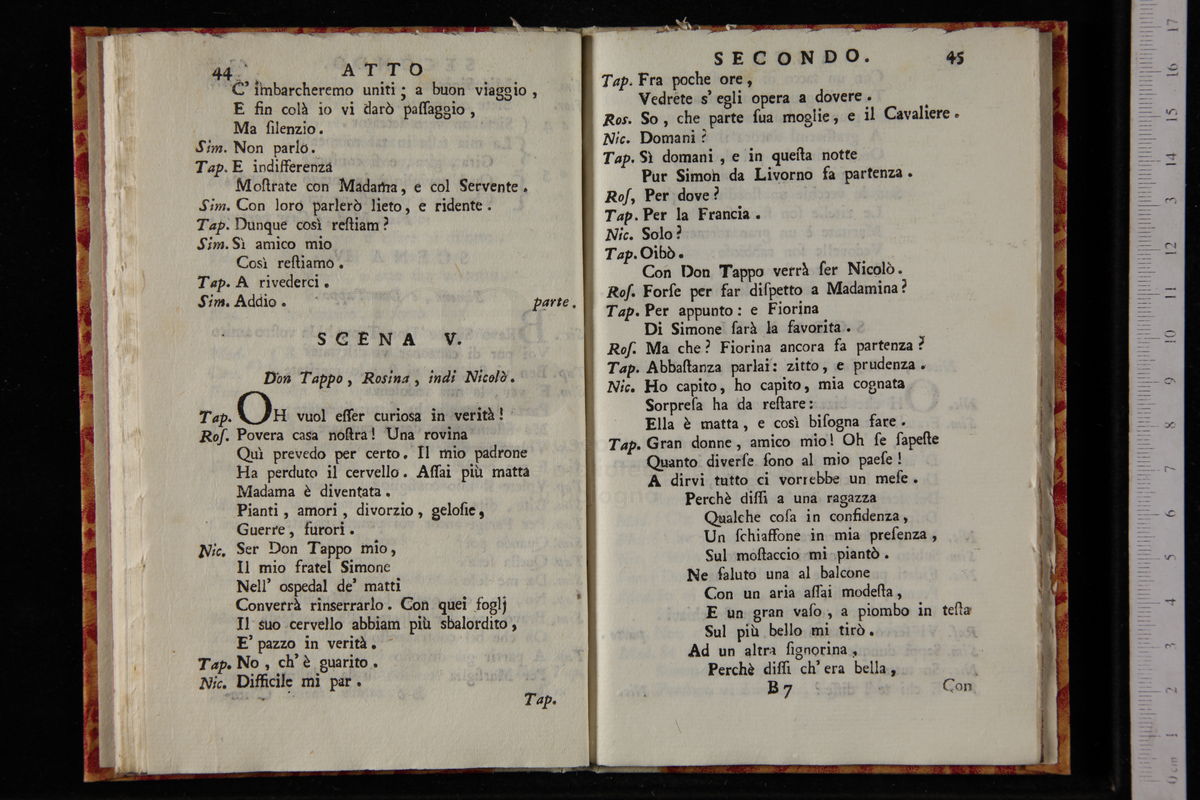 44 ATTO
C' imbarcheremo uniti ; a buon viaggio ,
E fin colà io vi darò paſſaggio ,
Ma ſilenzio .
Sim. Non parlo .
Tap. E indifferenza
Moſtrate con Madama , e col Servente .
Sim. Con loro parlerò lieto , e ridente .
Tap. Dunque così reſtiam ?
Sim. Sì amico mio
Così reſtiamo .
Tap. A rivederci .
Sim. Addio . parte .
SCENA V.
Don Tappo , Rosina , indi Nicolò .
Tap. OH vuol eſſer curiosa in verità !
Roſ. Povera casa noſtra ! Una rovina
Quì prevedo per certo . Il mio padrone
Ha perduto il cervello . Aſſai più matta
Madama è diventata .
Pianti , amori , divorzio , geloſie ,
Guerre , furori .
Nic. Ser Don Tappo mio ,
Il mio fratel Simone
Nell' ospedal de' matti
Converrà rinserrarlo . Con quei foglj
Il suo cervello abbiam più sbalordito ,
E' pazzo in verità .
Tap. No , ch' è guarito .
Nic. Difficile mi par .
Tap.
SECONDO. 45
Tap. Fra poche ore ,
Vedrete s' egli opera a dovere .
Ros. So , che parte ſua moglie , e il Cavaliere .
Nic. Domani ?
Tap. Sì domani , e in queſta notte
Pur Simon da Livorno fa partenza .
Roſ, Per dove ?
Tap. Per la Francia .
Nic. Solo ?
Tap. Oibò .
Con Don Tappo verrà ſer Nicolò .
Roſ. Forſe per far diſpetto a Madamina ?
Tap. Per appunto : e Fiorina
Di Simone ſarà la favorita .
Roſ. Ma che ? Fiorina ancora fa partenza ?
Tap. Abbaſtanza parlai : zitto , e prudenza .
Nic. Ho capito , ho capito , mia cognata
Sorpreſa ha da reſtare :
Ella è matta , e così biſogna fare .
Tap. Gran donne , amico mio ! Oh ſe ſapeſte
Quanto diverſe ſono al mio paeſe !
A dirvi tutto ci vorrebbe un meſe .
Perchè diſſi a una ragazza
Qualche coſa in confidenza ,
Un ſchiaffone in mia preſenza ,
Sul moſtaccio mi piantò .
Ne ſaluto una al balcone
Con un aria aſſai modeſta ,
E un gran vaſo , a piombo in teſta
Sul più bello mi tirò .
Ad un altra ſignorina ,
Perchè diſſi ch' era bella ,
B 7 Con